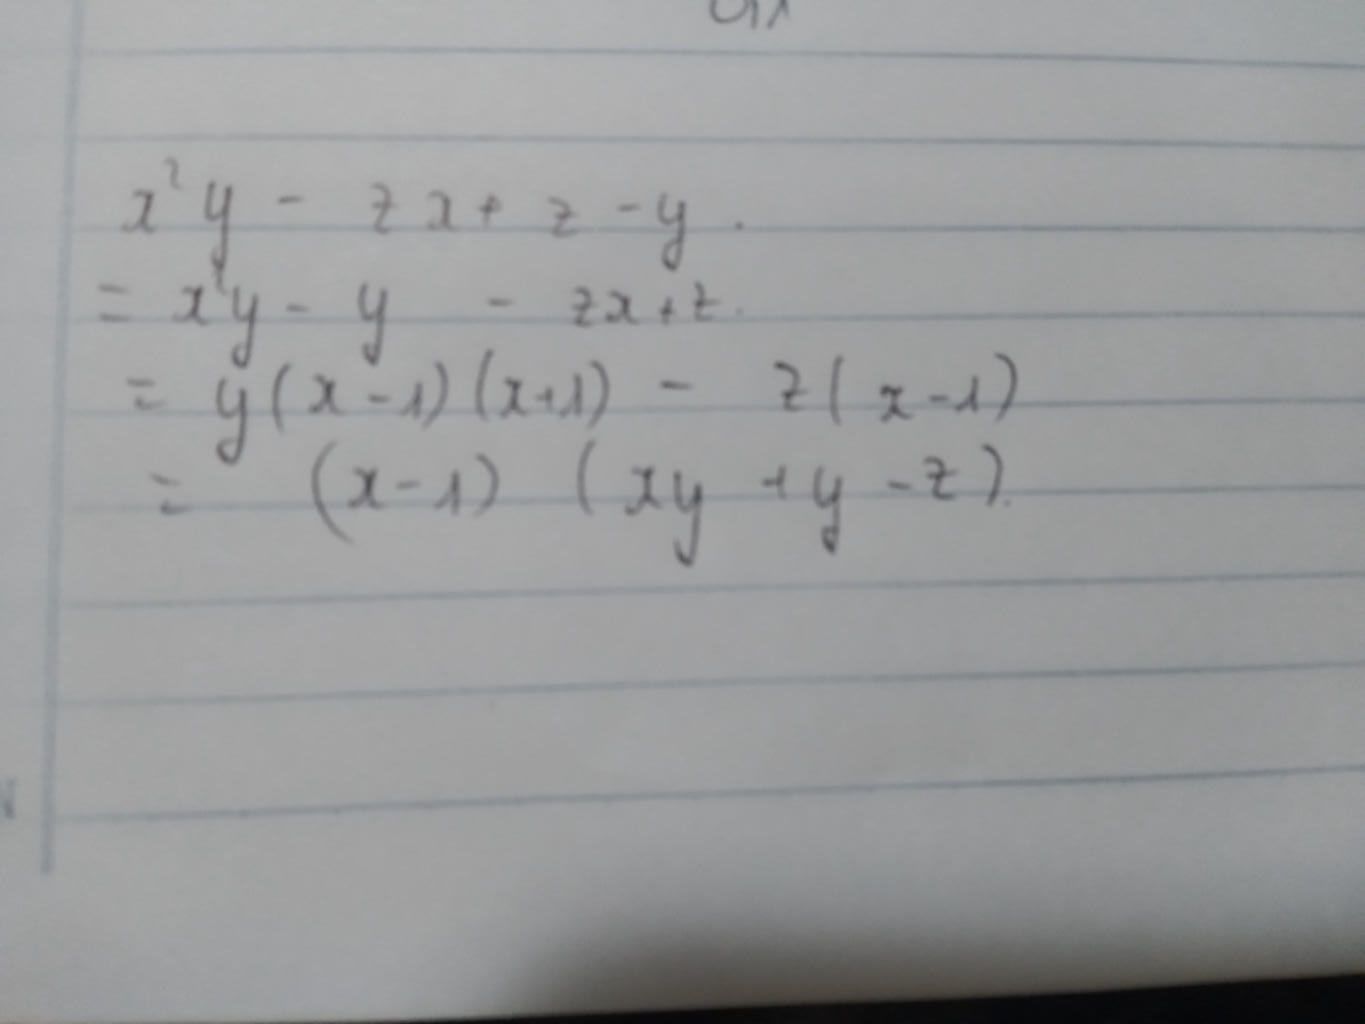 x²y - zx + z - y.
= x²y - y - zx + z.
= y(x-1)(x+1) - z(x-1)
= (x-1) (xy + y - z).